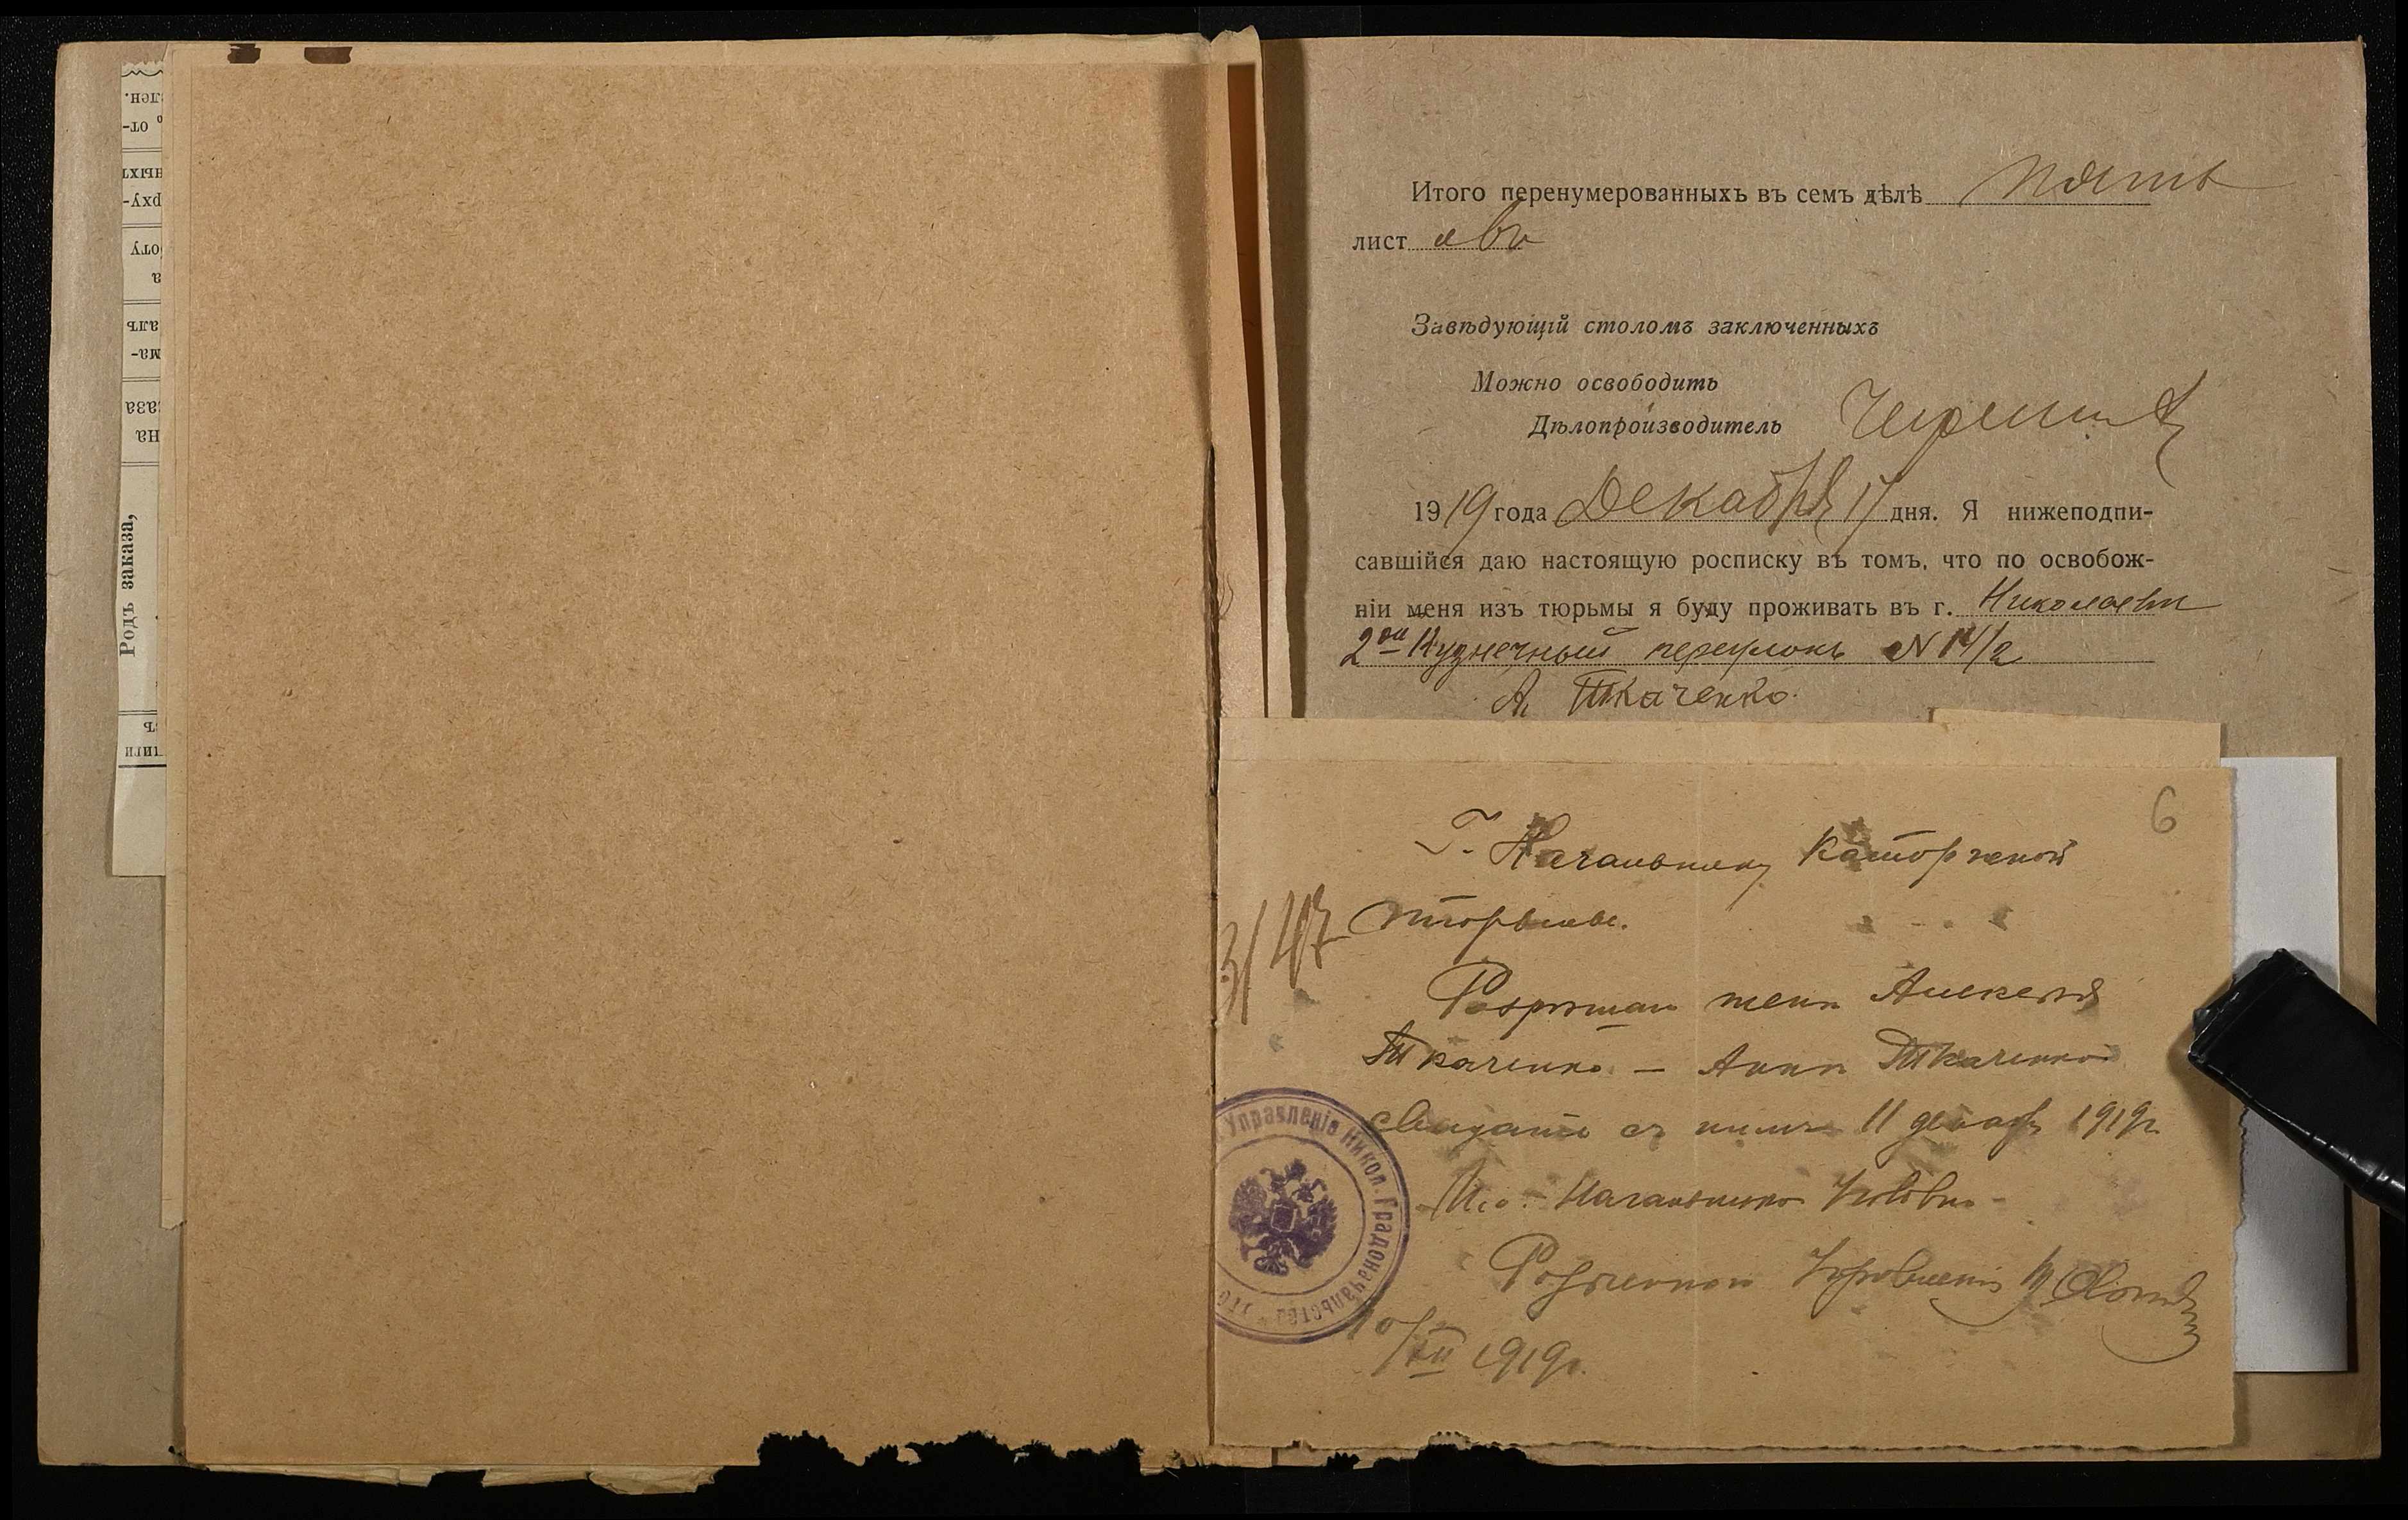 Итого перенумерованныхъ въ семъ дѣлѣ пять
лист овъ
Завѣдующій столомъ заключенныхъ
Можно освободить
Дѣлопроизводитель
1919 года Декабря 17 дня. Я нижеподпи-
савшійся даю настоящую росписку въ томъ, что по освобож-
ніи меня изъ тюрьмы я буду проживать въ г. Николаевѣ
2ой Кузнечный переулокъ N 14/а
А. Ткаченко.
6
Г. Начальнику Каторжной
тюрьмы.
3/47
Разрѣшаю женѣ Алексѣя
Ткаченко — Аннѣ Ткаченко
свиданіе съ нимъ 11 декабря 1919г.
И.о. Начальника
Управленія
10/XII 1919г.
Управленіе Никол. Градоначальства
Родъ заказа,